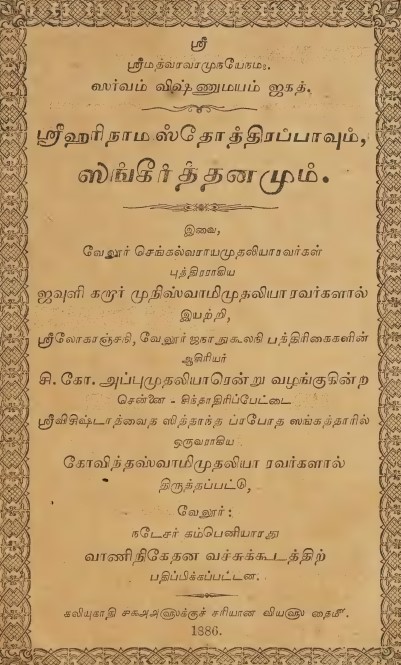 ஸ்ரீ
ஸர்வம் விஷ்ணுமயம் ஜகத்.
ஸ்ரீஹரிநாமஸ்தோத்திரப்பாவும்,
ஸங்கீர்த்தனமும்.
இவை,
வேலூர் செங்கல்வராயமுதலியாரவர்கள்
புத்திரராகிய
ஜவுளி கரூர் முநிஸ்வாமிமுதலியாரவர்களால்
இயற்றி,
ஸ்ரீலோகரஞ்சநி, வேலூர் ஜநாநுகூலநி பத்திரிகைகளின்
ஆசிரியர்
சி. கோ. அப்புமுதலியாரென்று வழங்குகின்ற
சென்னை - சிந்தாதிரிப்பேட்டை
ஸ்ரீவிசிஷ்டாத்வைத ஸித்தாந்த ப்ரபோத ஸங்கத்தாரில்
ஒருவராகிய
கோவிந்தஸ்வாமிமுதலியா ரவர்களால்
திருத்தப்பட்டு,
வேலூர் :
நடேசர் கம்பெனியாரது
வாணிநிகேதன வச்சுக்கூடத்திற்
பதிப்பிக்கப்பட்டன.
கலியுகாதி ௪௯௮௮ளுக்குச் சரியான வியளு தைமீ.
1886.